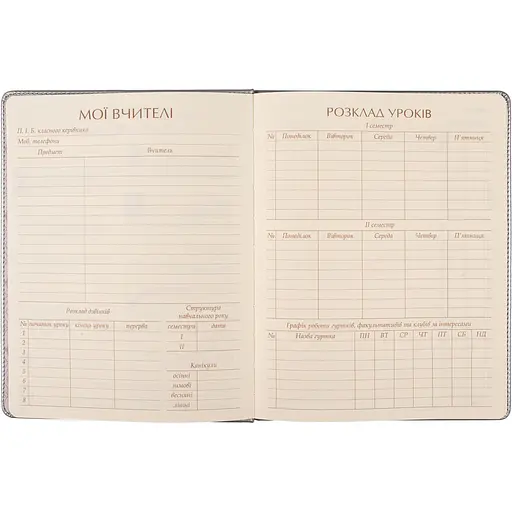 МОЇ ВЧИТЕЛІ
П. І. Б. класного керівника
Моб. телефони
Предмет Вчитель
Розклад дзвінків
№ початок уроку кінець уроку перерва
1
2
3
4
5
6
7
8
Структура
навчального року
семестри дати
I
II
Канікули
осінні
зимові
весняні
літні
РОЗКЛАД УРОКІВ
I семестр
№ Понеділок Вівторок Середа Четвер П'ятниця
II семестр
№ Понеділок Вівторок Середа Четвер П'ятниця
Графік роботи гуртків, факультативів та клубів за інтересами
№ Назва гуртка ПН ВТ СР ЧТ ПТ СБ НД